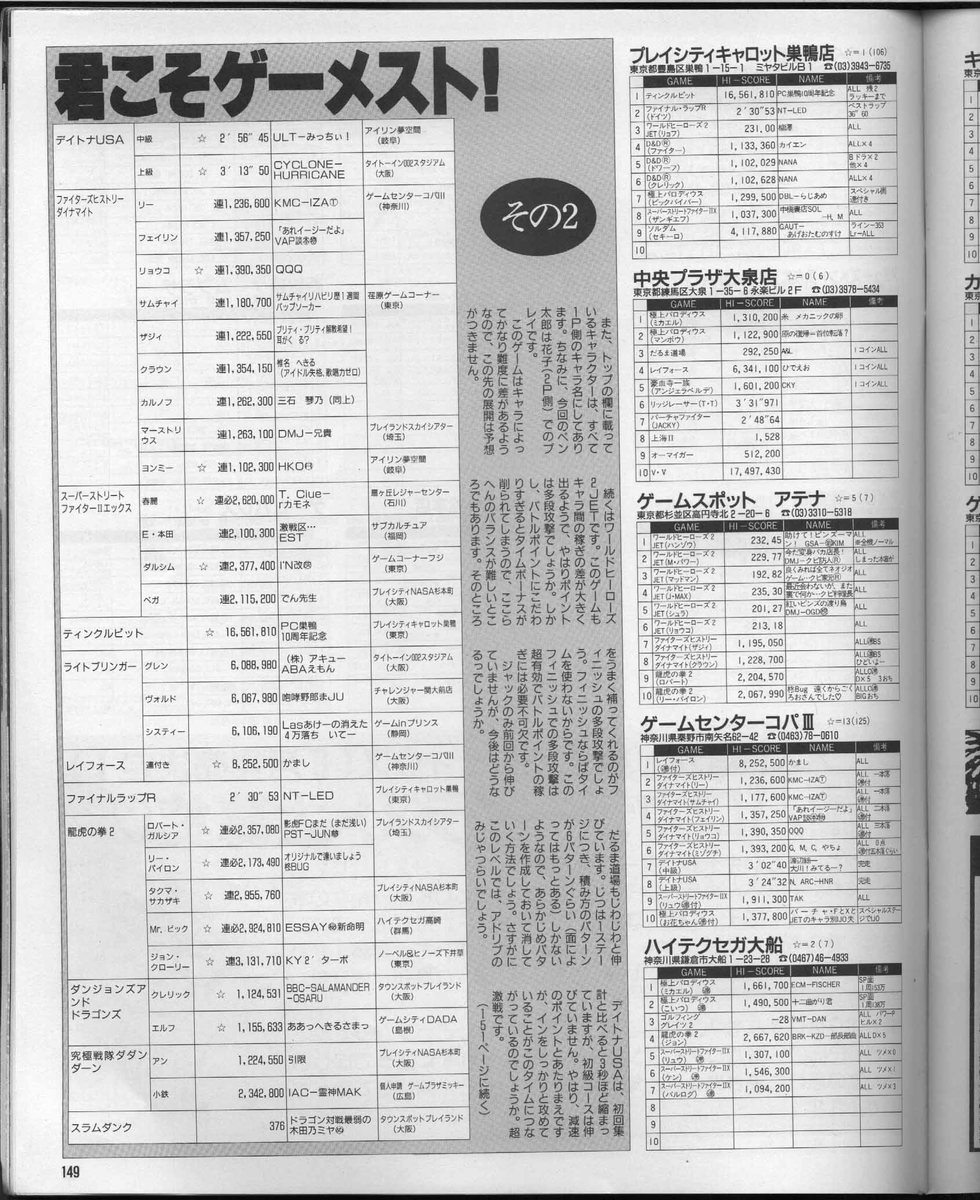 君こそゲーメスト!
その2
デイトナUSA 中級 ☆ 2′56″45 ULT-みっちぃ! アイリン夢空間(岐阜)
上級 ☆ 3′13″50 CYCLONE-HURRICANE タイトーイン002スタジアム(大阪)
ファイターズヒストリーダイナマイト リー 連1,236,600 KMC-IZAⓉ ゲームセンターコパIII(神奈川)
フェイリン 連1,357,250 「あれイージーだよ」VAP談
リョウコ ☆ 連1,390,350 QQQ
サムチャイ 連1,180,700 サムチャイリハビリ歴!週間バップソーカー 荏原ゲームコーナー(東京)
ザジィ 連1,222,550 プリティ・プリティ解散希望!耳がくる?
クラウン 連1,354,150 椎名 へきる(アイドル失格、歌唱力ゼロ)
カルノフ 連1,262,300 三石 琴乃(同上)
マーストリウス 連1,263,100 DMJ-兄貴 プレイランドスカイシアター(埼玉)
ヨンミー ☆ 連1,102,300 HKO アイリン夢空間(岐阜)
スーパーストリートファイターIIエックス 春麗 ☆ 連必2,620,000 T. Ciue-rカモネ 扇ヶ丘レジャーセンター(石川)
E・本田 ☆ 連2,100,300 激戦区…EST サブカルチュア(福岡)
ダルシム ☆ 連2,377,400 I'N改 ゲームコーナーフジ(東京)
ベガ 連2,115,200 でん先生 プレイシティNASA杉本町(大阪)
ティンクルピット ☆ 16,561,810 PC巣鴨10周年記念 プレイシティキャロット巣鴨(東京)
ライトブリンガー グレン 6,088,980 (株)アキューABAえもん タイトーイン002スタジアム(大阪)
ヴォルド 6,067,980 咆哮野郎まJU チャレンジャー関大前店(大阪)
システィー 6,106,190 Lasあけーの消えた4万落ち いてー ゲームinプリンス(静岡)
レイフォース 連付き ☆ 8,252,500 かまし ゲームセンターコパIII(神奈川)
ファイナルラップR 2′30″53 NT-LED プレイシティキャロット巣鴨(東京)
龍虎の拳2 ロバート・ガルシア ☆ 連必2,357,080 影虎FCまだ(まだ浅い)PST-JUN プレイランドスカイシアター(埼玉)
リー・パイロン 連必2,173,490 オリジナルで逢いましょう 柊BUG
タクマ・サカザキ ☆ 連2,955,760 プレイシティNASA杉本町(大阪)
Mr.ビック ☆ 連必2,324,810 ESSAY 新命明 ハイテクセガ高崎(群馬)
ジョン・クローリー ☆ 連3,131,710 KY2′ターボ ノーベル&ヒノーズ下井草(東京)
ダンジョンズアンドドラゴンズ クレリック ☆ 1,124,531 BBC-SALAMANDER-OSARU タウンスポットプレイランド(大阪)
エルフ ☆ 1,155,633 ああっへきるさまっ ゲームシティDADA(島根)
究極戦隊ダダンダーン アン 1,224,550 引限 プレイシティNASA杉本町(大阪)
小鉄 2,342,800 IAC-霊神MAK 個人申請 ゲームプラザミッキー(広島)
スラムダンク 376 ドラゴン対戦最弱の木田乃ミヤ タウンスポットプレイランド(大阪)
また、トップの欄に載って
いるキャラクターは、すべて
1P側のキャラ名にしてあり
ます。ちなみに、今回のペン
太郎は花子(2P側)でのプ
レイです。
このゲームはキャラによっ
てかなり難度に差があるよう
なので、この先の展開は予想
がつきません。
続くはワールドヒーローズ
2JETです。このゲームも
キャラ間の稼ぎの差が大きく
出るようで、やはりポイント
は多段攻撃でしょうか。しか
し、バトルポイントにこだわ
りすぎるとタイムボーナスが
削られてしまうので、ここら
へんのバランスが難しいとこ
ろでもあります。そのところ
をうまく補ってくれるのがフ
ィニッシュの多段攻撃でしょ
う。フィニッシュならばタイ
ムを使わないからです。この
フィニッシュでの多段攻撃は
超有効でバトルポイントの稼
ぎには必要不可欠です。
ジャックのみ前回から伸び
ていませんが、今後はどうな
るってしょうか。
だるま道場もじわじわと伸
びています。じつは1ステー
ジにつき、積み方のパターン
が6パターンぐらい(面によ
ってはもっとある)しかない
ようなので、あらかじめパタ
ーンを作成しておいて消して
いく方法でしょう。さすがに
このレベルでは、アドリブの
みじゃつらいでしょう。
デイトナUSAは、初回集
計と比べると3秒ほど縮まっ
ていますが、初級コースは伸
びていません。やはり、減速
のポイントとあたりまえです
が、インをしっかりと攻めて
いることがこのタイムにつな
がっているのでしょうか。超
激戦です。
(151ページに続く)
プレイシティキャロット巣鴨店 ☆=1(106)
東京都豊島区巣鴨1-15-1 ミヤタビルB1 ☎(03)3943-6735
GAME HI-SCORE NAME 備考
1 ティンクルピット 16,561,810 PC巣鴨10周年記念 ALL 残2 ラッキーまで
2 ファイナル・ラップR(ドイツ) 2′30″53 NT-LED ベストラップ36″60
3 ワールドヒーローズ2JET(リョフ) 231,00 ALL
4 D&DⓇ(ファイター) 1,133,360 カイエン ALL×4
5 D&DⓇ(ドワーフ) 1,102,029 NANA Bドラ×2 他×4
6 D&DⓇ(クレリック) 1,102,628 NANA ALL×4
7 極上パロディウス(ビックバイパー) 1,299,500 DBL-らじあめ スペシャル面 連付き
8 スーパーストリートファイターIIX(ザンギエフ) 1,037,300 中検書店SOL-H,M ALL
9 ソルダム(セキーロ) 4,117,880 GAUT-あげおたむのすけ ライン-353 Lr-ALL
10
中央プラザ大泉店 ☆=0(6)
東京都練馬区大泉1-35-6 永楽ビル2F ☎(03)3978-5434
GAME HI-SCORE NAME 備考
1 極上パロディウス(ミカエル) 1,310,200 糸 メカニックの卵
2 極上パロディウス(マンボウ) 1,122,900 原の復帰=首付転落?
3 だるま道場 292,250 A&L 1コインALL
4 レイフォース 6,341,100 ひでえお 1コインALL
5 豪血寺一族(アンジェラベルデ) 1,601,200 CKY 1コインALL
6 リッジレーサー(T・T) 3′31″971
7 バーチャファイター(JACKY) 2′48″64
8 上海II 1,528
9 オーマイガー 512,200
10 V・V 17,497,430
ゲームスポット アテナ ☆=5(7)
東京都杉並区高円寺北2-20-6 ☎(03)3310-5318
GAME HI-SCORE NAME 備考
1 ワールドヒーローズ2JET(ハンゾウ) 232,45 助けて!ピンズーマン! GSA-KIM ALL ※全機ノーマル
2 ワールドヒーローズ2JET(M・パワー) 229,77 今だ変身バカ店長!DMJ-クビ訪人 ALL しまった本音が
3 ワールドヒーローズ2JET(マッドマン) 192,82 良くみれば全てネオジオゲーム…クビ寒光 ALL
4 ワールドヒーローズ2JET(J・MAX) 235,30 最近会わないが、また裏で何か…クビ ALL
5 ワールドヒーローズ2JET(シュラ) 201,27 紅いピンズの渡り鳥 DMJ-OGD ALL
6 ワールドヒーローズ2JET(リョウコ) 213,18 ALL
7 ファイターズヒストリーダイナマイト(ザジィ) 1,195,050 ALL BS
8 ファイターズヒストリーダイナマイト(クラウン) 1,228,700 ALL BS ひどいよー
9 龍虎の拳2(ロバート) 2,204,570 ALL D×5 3おち
10 龍虎の拳2(リー・パイロン) 2,067,990 柊Bug 遠くからごくろおさんでした♡ ALL BIGおち
ゲームセンターコパIII ☆=13(125)
神奈川県秦野市南矢名62-42 ☎(0463)78-0610
GAME HI-SCORE NAME 備考
1 レイフォース(連付) 8,252,500 かまし ALL
2 ファイターズヒストリーダイナマイト(リー) 1,236,600 KMC-IZAⓉ ALL 一本落 連付
3 ファイターズヒストリーダイナマイト(サムチャイ) 1,177,600 KMC-IZAⓉ ALL 一本落 連付
4 ファイターズヒストリーダイナマイト(フェイリン) 1,357,250 「あれイージーだよ」VAP談 ALL 二本落 連付
5 ファイターズヒストリーダイナマイト(リョウコ) 1,390,350 QQQ ALL 三本落 連付
6 ファイターズヒストリーダイナマイト(ミゾグチ) 1,393,200 G,M,C,やちょ ALL 0点 連付五本落ぐらい
7 デイトナUSA(中級) 3′02″40 渡辺雄一 大川!みてるー? 完走
8 デイトナUSA(上級) 3′24″32 N,ARC-HNR 完走
9 スーパーストリートファイターIIX(リュウ連付) 1,911,300 TAK ALL
10 極上パロディウス(お花ちゃん連付) 1,377,800 バーチャ・FとXとJETのキャラ別JO大 スペシャルステージでJO
ハイテクセガ大船 ☆=2(7)
神奈川県鎌倉市大船1-23-28 ☎(0467)46-4933
GAME HI-SCORE NAME 備考
1 極上パロディウス(ミカエル)連 1,661,700 ECM-FISCHER SP面 1周153万
2 極上パロディウス(こいつ)連 1,490,500 十二曲がり君 SP面 1周138万
3 ゴルフィンググレイツ2 -28 VMT-DAN ALL パワードヒル×2
4 龍虎の拳2(ジョン) 2,667,620 BRK-KZD-部長部曲 ALL D×5
5 スーパーストリートファイターIIX(リュウ)連 1,307,100 ALL ツメ×0
6 スーパーストリートファイターIIX(ケン)連 1,546,300 ALL ツメ×1
7 スーパーストリートファイターIIX(バルログ)連 1,094,200 ALL ツメ×1
8
9
10
149